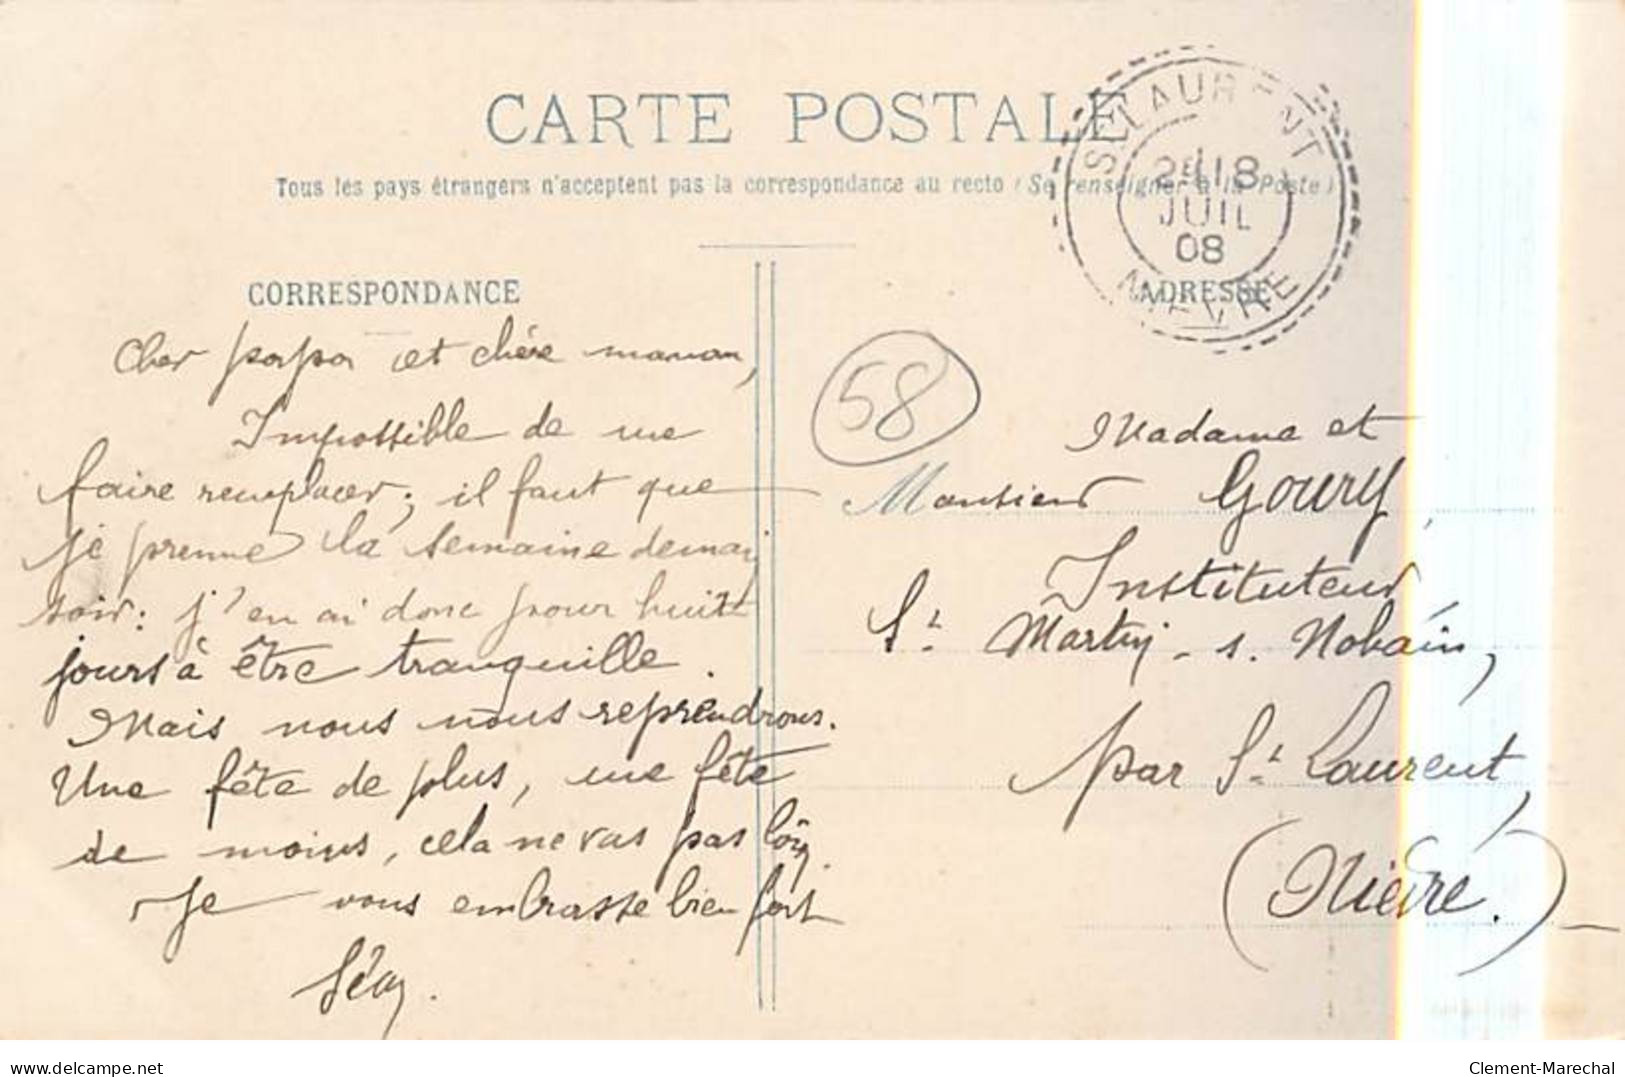 CARTE POSTALE
Tous les pays étrangers n'acceptent pas la correspondance au recto (Se renseigner à la Poste)
ST LAURENT
JUIL
08
NIEVRE
CORRESPONDANCE
Cher papa et chère maman,
Impossible de me
faire remplacer; il faut que
je prenne la semaine demain
soir: j'en ai donc pour huit
jours à être tranquille.
Mais nous nous reprendrons.
Une fête de plus, une fête
de moins, cela ne vas pas loin.
Je vous embrasse bien fort
ADRESSE
58
Madame et
Monsieur Goury,
Instituteur
St Martin-s. Nohain,
par St Laurent,
(Nièvre.)
delcampe.net
Clement-Marechal